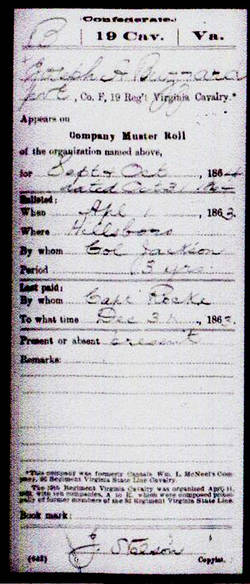 Confederate.
B 19 Cav. Va.
Joseph A Buzzard
Pvt, Co. F, 19 Reg't Virginia Cavalry.*
Appears on
Company Muster Roll
of the organization named above,
for Sept & Oct, 1864
dated Oct 31 186
Enlisted:
When Apl 1, 1863
Where Hillsboro
By whom Col Jackson
Period 3 yrs.
Last paid:
By whom Capt
To what time Dec 31, 1863.
Present or absent Present
Remarks:
*This company was formerly Captain Wm. L. McNeel's Company, Regiment Virginia State Line Cavalry.
The 19th Regiment Virginia Cavalry was organized April 11, 1863, with ten companies, A to K, which were composed principally of former members of the Regiment Virginia State Line.
Book mark:
(642) Copyist.